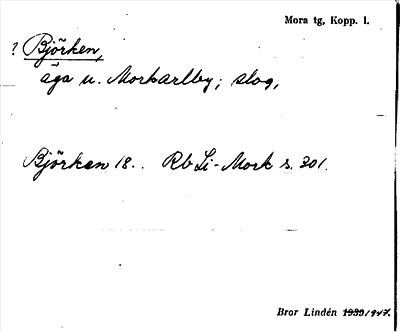 Mora tg, Kopp. l.
? Björken,
äga u. Morkarlby; slog,
Björkan 18.. Rb Li-Mork s. 301.
Bror Lindén 1939/1947.